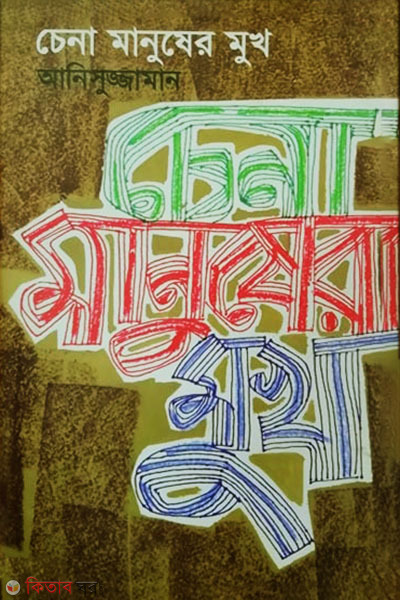 চেনা মানুষের মুখ
আনিসুজ্জামান
চেনা
মানুষের
মুখ
কিতাব ঘর